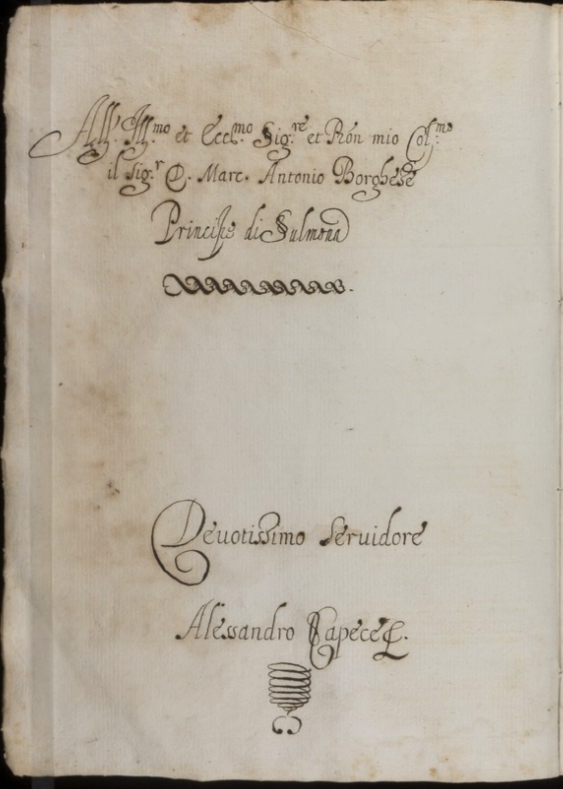 All'. Ill.mo et Eccl.mo Sig.re et Pron mio Col.mo
il Sig.r D. Marc. Antonio Borghese
Principe di Sulmona
Devotissimo Servidore
Alessandro Capece